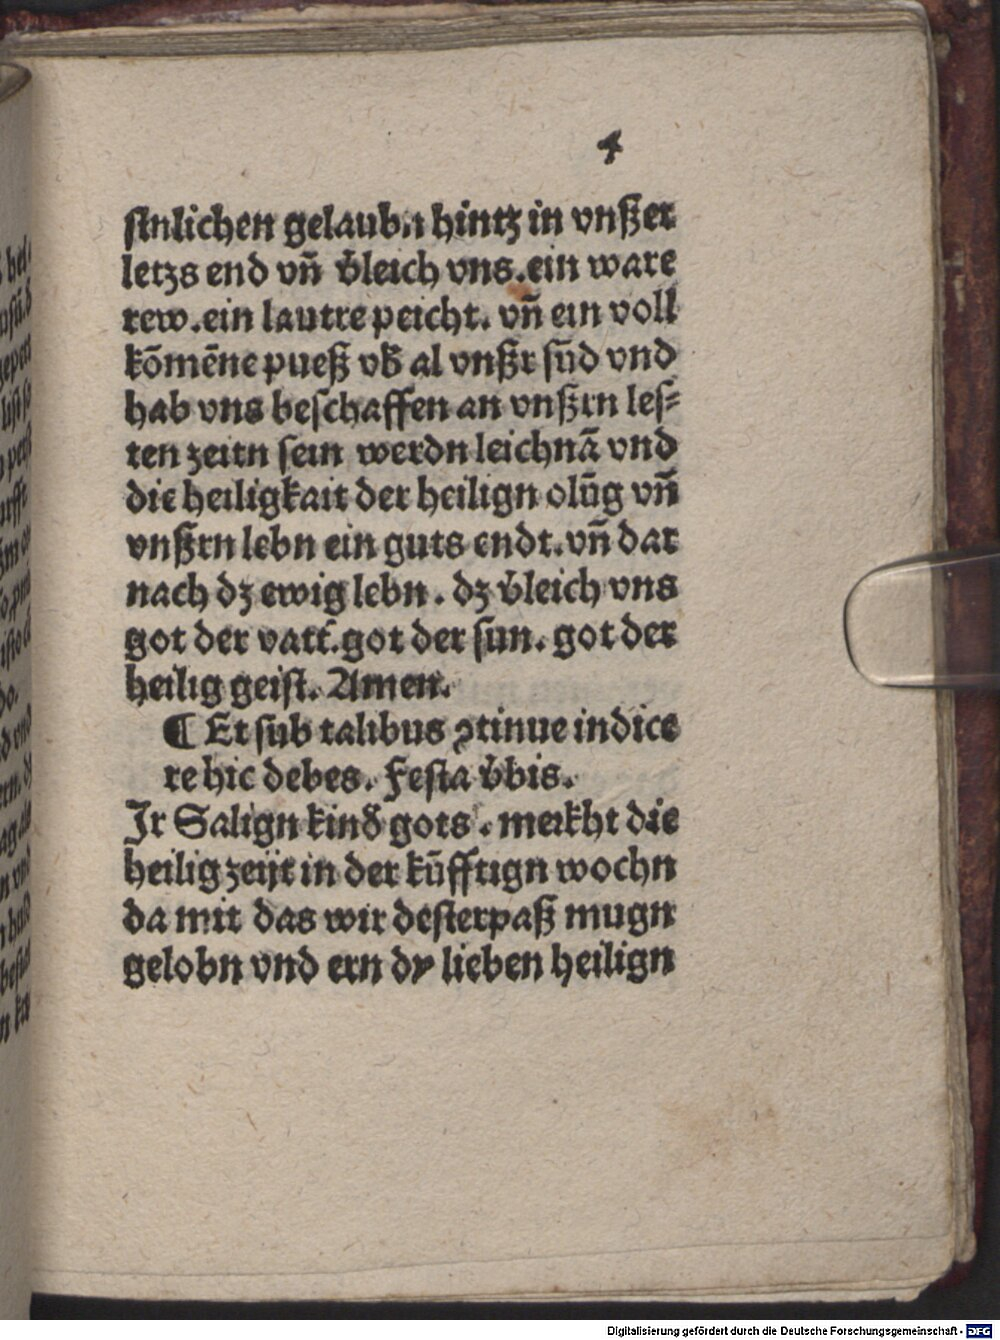 4
sinlichen gelaubn hintz in vnßer
letzs end vn̄ v̾leich vns. ein ware
rew. ein lautre peicht. vn̄ ein voll
kōmēne pueß vb̾ al vnßr sūd vnd
hab vns beschaffen an vnßrn les⸗
ten zeitn sein werdn leichnā vnd
die heiligkait der heilign olūg vn̄
vnßrn lebn ein guts endt. vn̄ dar
nach dz ewig lebn. dz v̾leich vns
got der vatt̾. got der sun. got der
heilig geist. Amen.
¶ Et sub talibus ꝯtinue indice
re hic debes. Festa v̾bis.
Ir Salign kind̾ gots. merkht die
heilig zeijt in der kūfftign wochn
da mit das wir desterpaß mugn
gelobn vnd ern dy lieben heilign
Digitalisierung gefördert durch die Deutsche Forschungsgemeinschaft - DFG